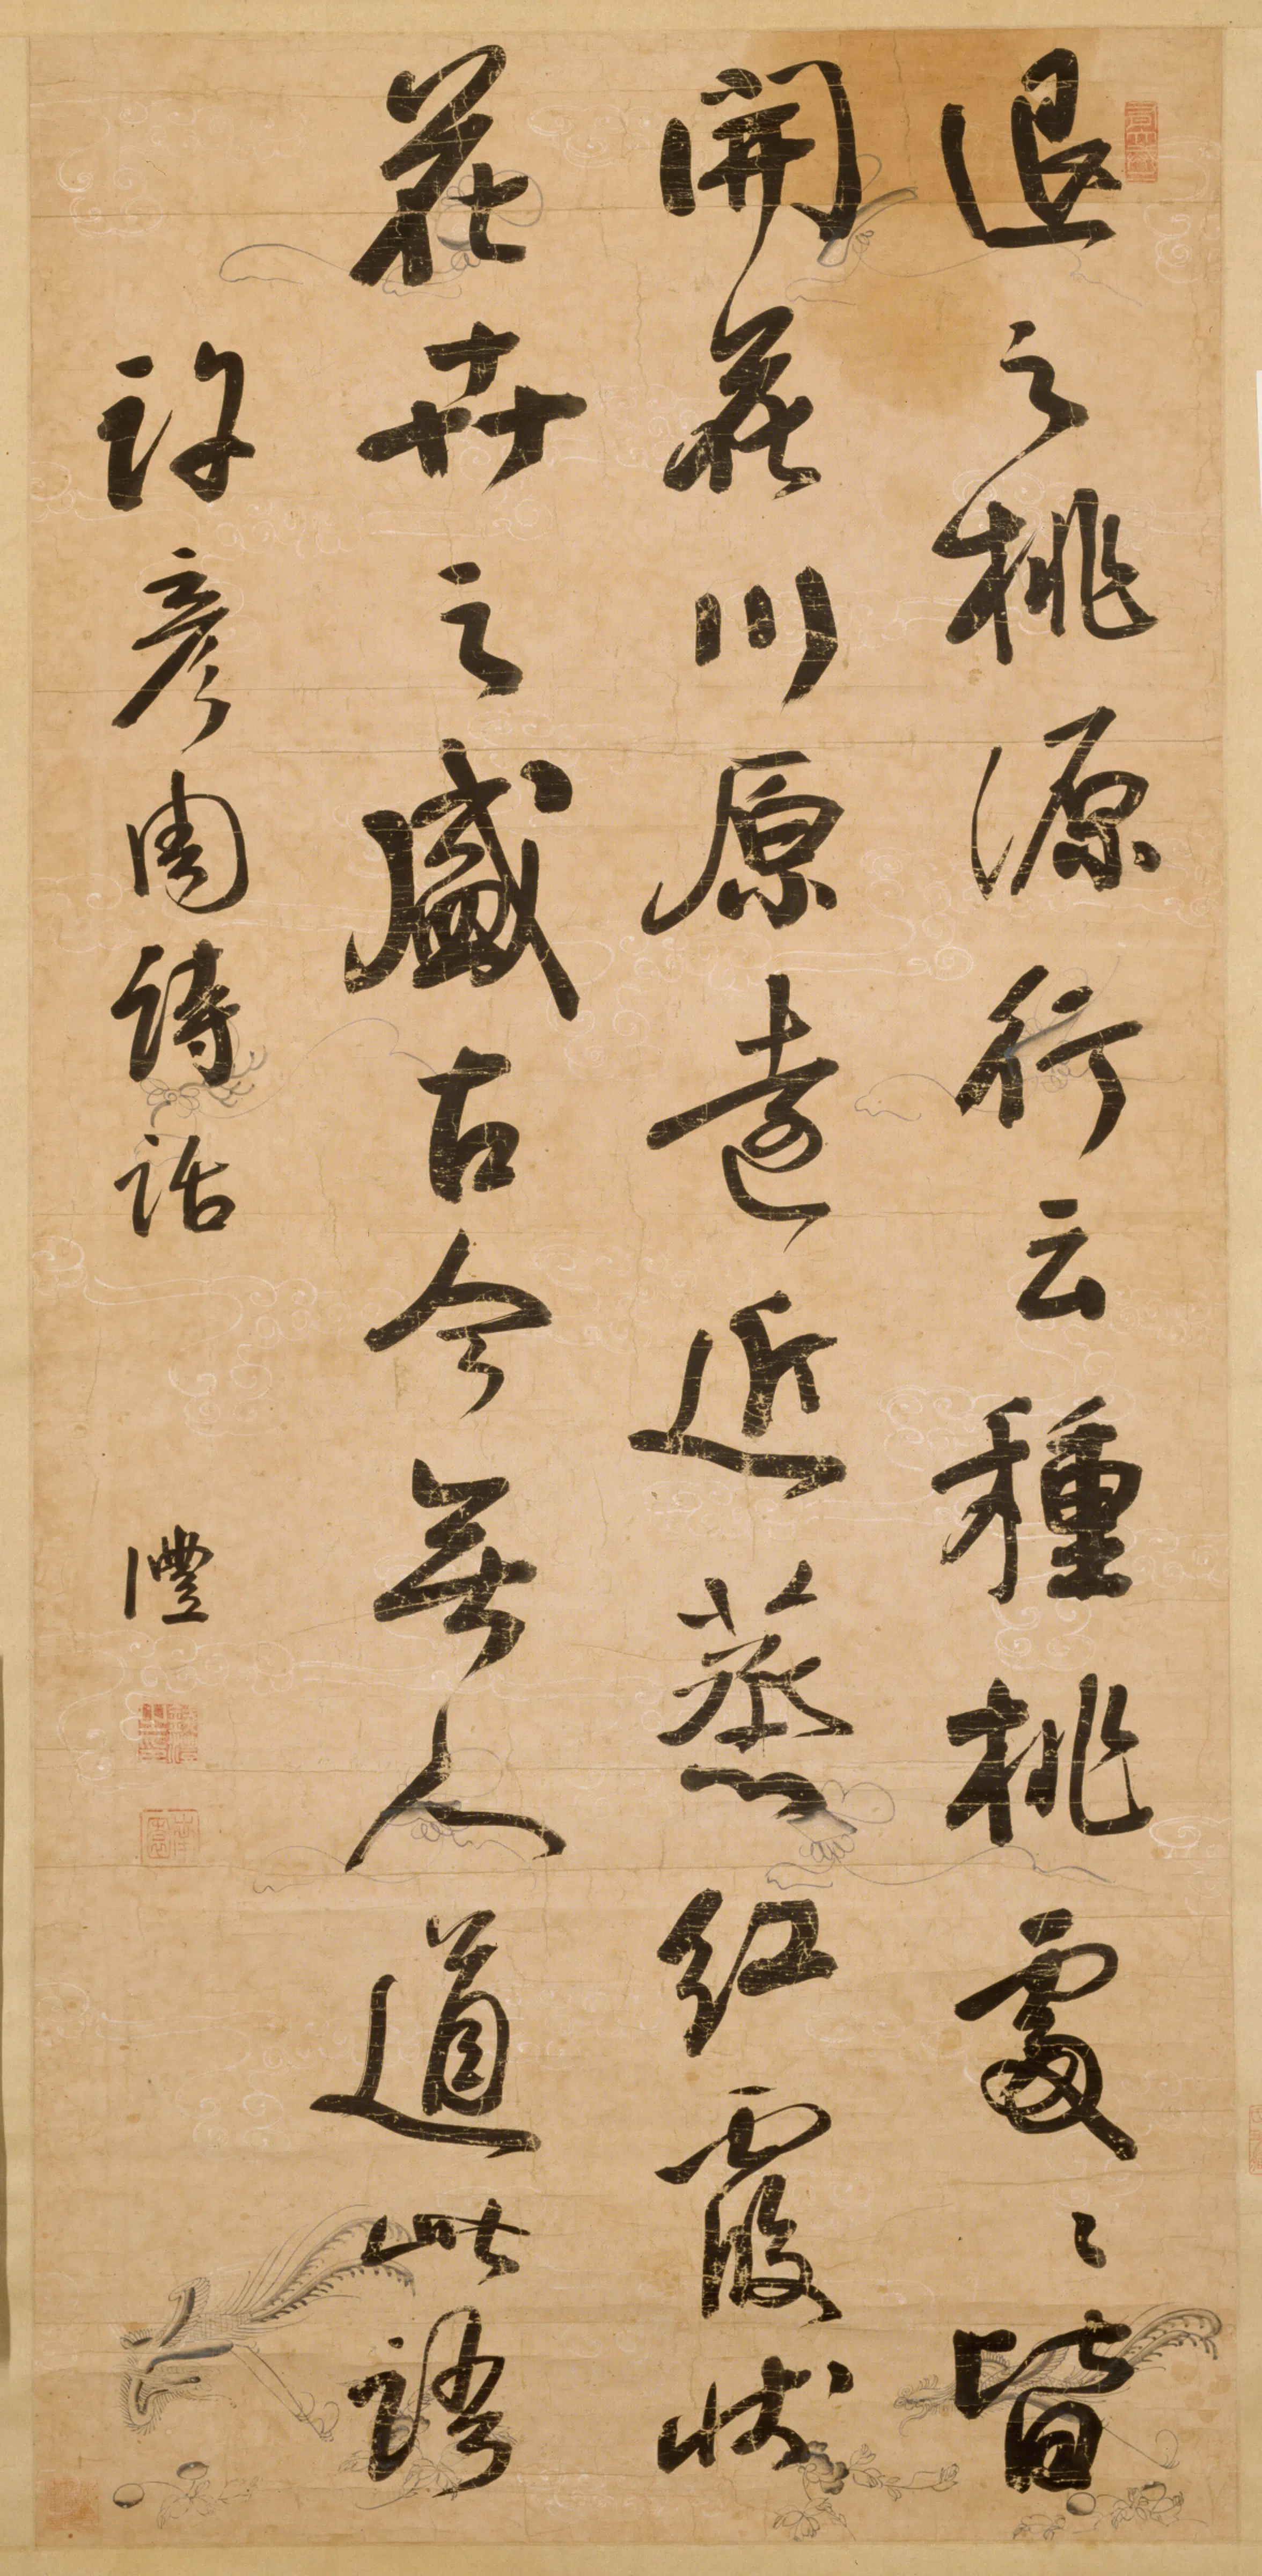 退之桃源行云種桃處〻皆
開花川原遠近蒸紅霞狀
花卉之盛古今無人道此語
許彦周詩話
灃